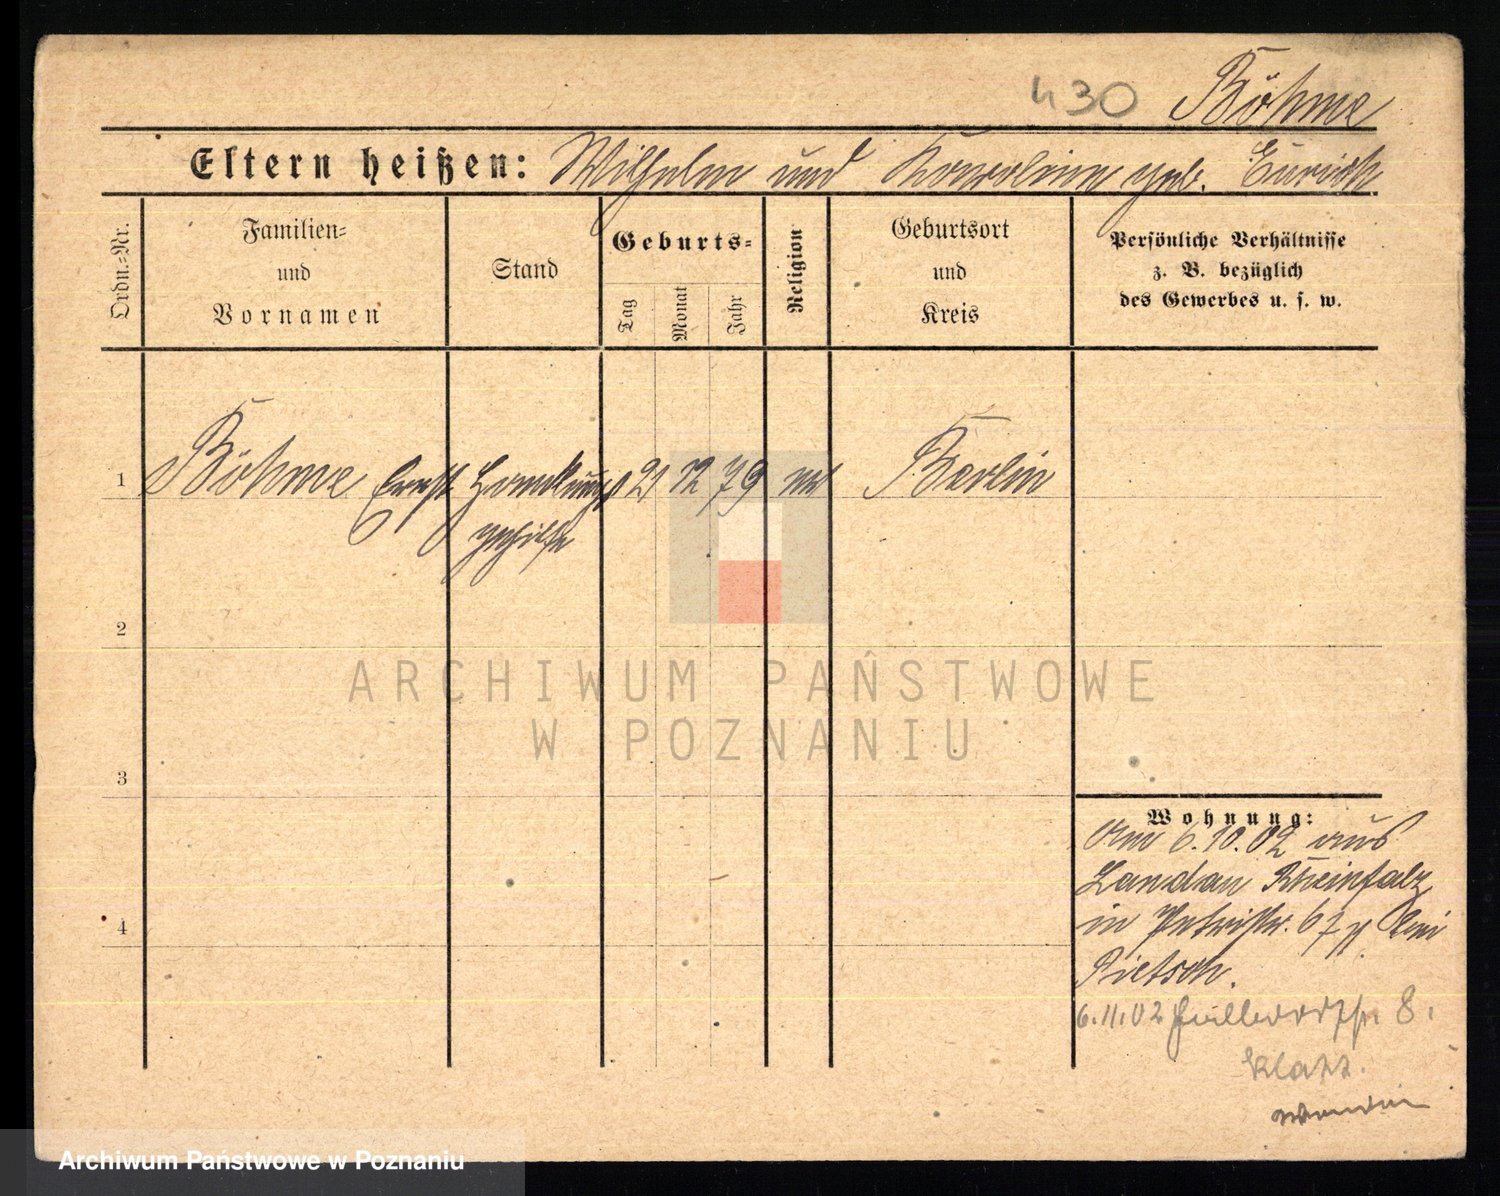 430 Böhme
Eltern heißen: Wilhelm und geb.
Ordn.=Nr.
Familien=
und
Vornamen
Stand
Geburts=
Tag
Monat
Jahr
Religion
Geburtsort
und
Kreis
Persönliche Verhältnisse
z. B. bezüglich
des Gewerbes u. s. w.
1 Böhme Ernst Handlungs 21 12 79 Berlin
gehilfe
2
3
4
Wohnung:
Am 6.10.02 aus
Landau Rheinfalz
in Petristr. 67 bei
Pietsch.
6.11.02 8.
Klatt.
ARCHIWUM PAŃSTWOWE
W POZNANIU
Archiwum Państwowe w Poznaniu